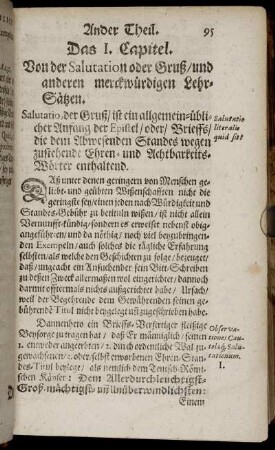 Ander Theil.
95
Das I. Capitel.
Von der Salutation oder Gruß/und
anderen merckwürdigen Lehr-
Sätzen.
Salutatio, der Gruß/ ist ein allgemein-übli-
cher Anfang der Epistel/ oder/ Brieffs/
die dem Abwesenden Standes wegen
zustehende Ehren- und Achtbarkeits-
Wörter enthaltend.
Salutatio
literalis
quid sit?
Daß unter denen geringern von Menschen ge-
liebt- und geübten Wissenschafften nicht die
geringste sey/einen jeden nach Würdigkeit und
Standes-Gebühr zu betituln wissen/ ist nicht allein
Vernunfft-kündig/sondern es erweiset nebenst obig-
angeführten/und da nöthig/ noch viel beyzubringen-
den Exempeln/auch solches die tägliche Erfahrung
selbsten/als welche den Geschichten zu folge/bezeuget/
daß/ungeacht ein Ansuchender sein Bitt-Schreiben
zu dessen Zweck allermaßen wol eingerichtet/dannoch
darmit offtermals nichts außgerichtet habe/ Ursach/
weil der Begehrende dem Gewährenden seinen ge-
bührende Titul nicht beygelegt und zugeschrieben habe.
Dannenhero ein Brieffs-Verfertiger fleißige
Vorsorge zu tragen hat/ daß Er männiglich/ seinen
1. entweder angeerbten/ 2. durch ordentliche Wal zu-
gewachsenen/ 2. oder selbst erworbenen Ehren-Stan-
des-Titul beylege/ als nemlich dem Teutsch-Römi-
schen Käyser: Dem Allerdurchleuchtigst-
Groß-mächtigst- und Unüberwindlichsten:
Observa-
tiones, Cau-
telæq; Sa-
lutationum.
I.
Einem